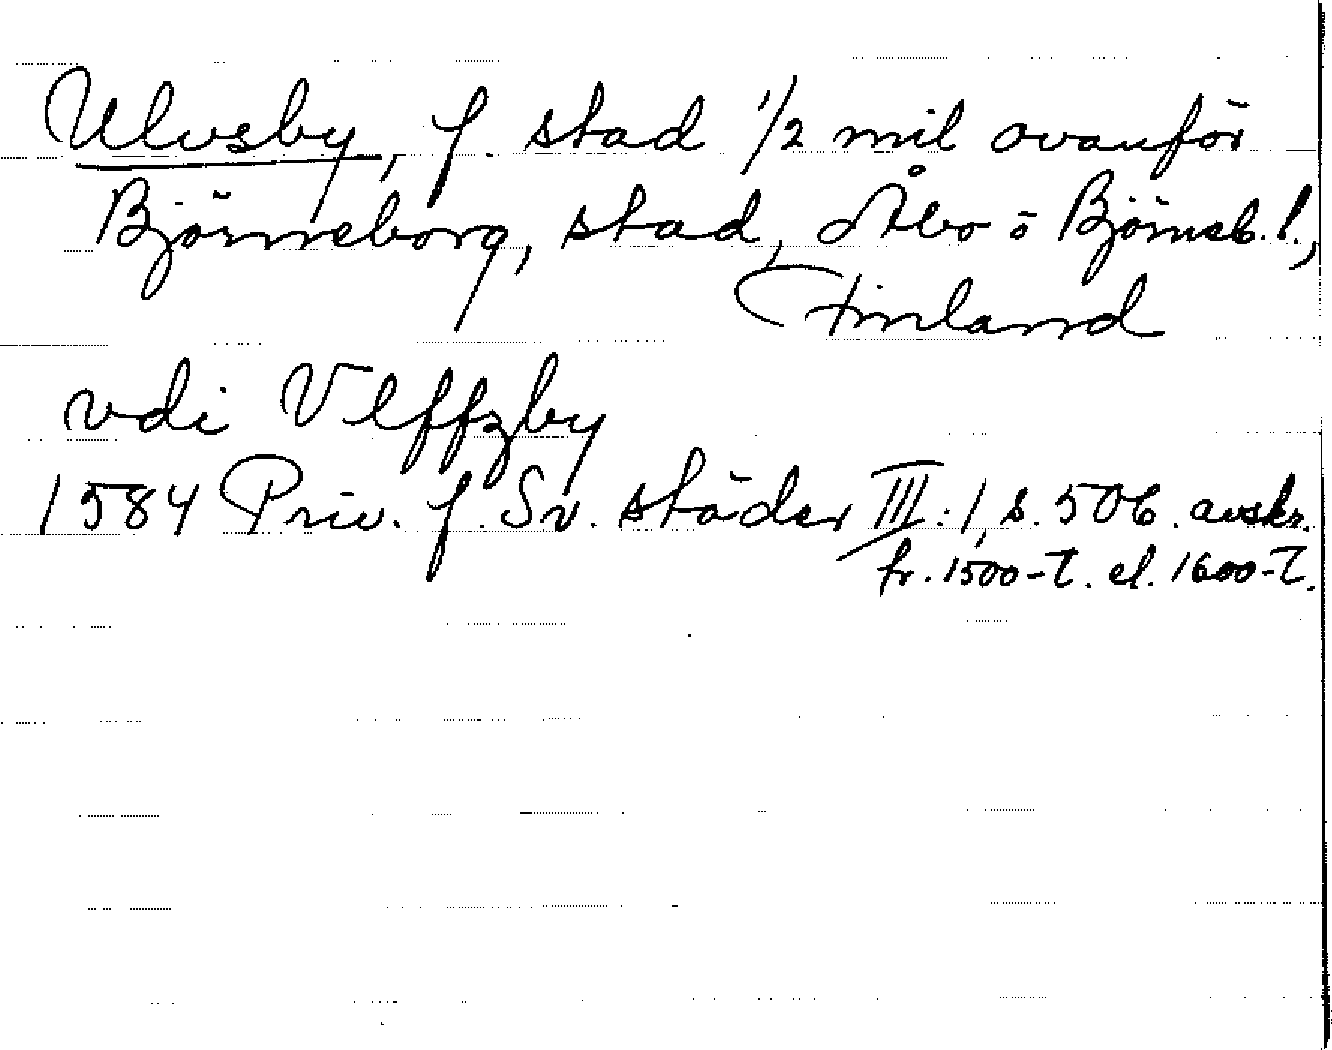 Ulvsby, f. stad 1/2 mil ovanför
Björneborg, stad, Åbo o Björneb. l.,
Finland
vdi Vlffzby
1584 Priv. f. Sv. städer III:1, s. 506. avskr.
fr. 1500-t. el. 1600-t.